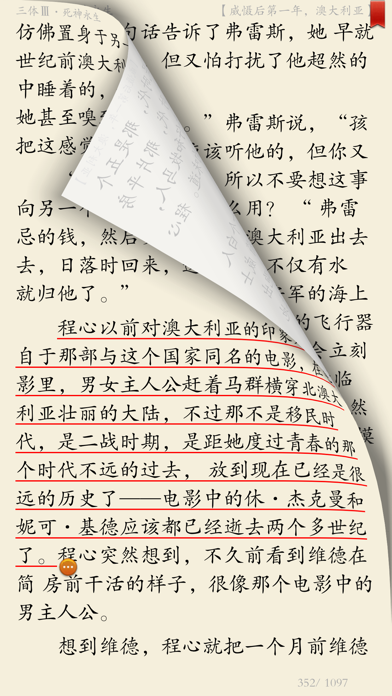 三体Ⅲ·死神永生 【威慑后第一年，澳大利亚】
仿佛置身于另 句话告诉了弗雷斯，她 早就
世纪前澳大利 但又怕打扰了他超然的
中睡着的，
她甚至嗅到 。”弗雷斯说，“孩
把这感觉 该听他的，但你又
所以不要想这事
向另一个 么用？ “弗雷
忌的钱，然后 澳大利亚出去
去，日落时回来，这 不仅有水
就归他了。” 军的海上
程心以前对澳大利亚的印象 的飞行器
自于那部与这个国家同名的电影，在 会立刻
影里，男女主人公赶着马群横穿北澳大 临
利亚壮丽的大陆，不过那不是移民时 然
代，是二战时期，是距她度过青春的那
个时代不远的过去， 放到现在已经是很
远的历史了——电影中的休·杰克曼和
妮可·基德应该都已经逝去两个多世纪
了。程心突然想到，不久前看到维德在
简 房前干活的样子，很像那个电影中的
男主人公。
想到维德，程心就把一个月前维德
352/ 1097